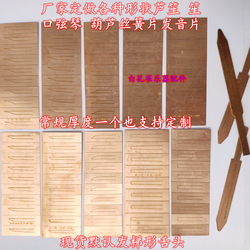 厂家定做各种形状芦笙 笙
口弦琴 葫芦丝簧片发音片
白孔雀乐器配件
常规厚度一个也支持定制
现货默认发梯形舌头